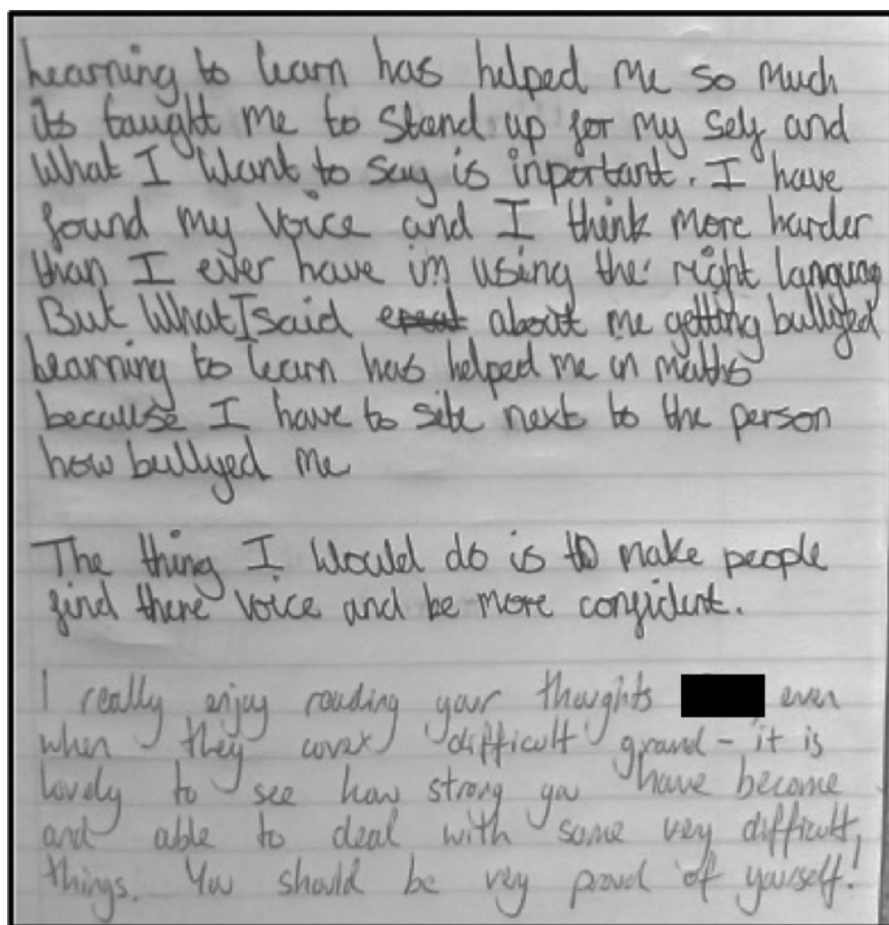 Learning to learn has helped me so much
its taught me to stand up for my self and
What I Want to say is inportant. I have
found my voice and I think more harder
than I ever have im using the right languag
But What I said about me getting bullyed
Learning to learn has helped me in maths
because I have to site next to the person
how bullyed me
The thing I Would do is to make people
find there voice and be more confident.
I really enjoy reading your thoughts even
when they cover difficult ground - it is
lovely to see how strong you have become
and able to deal with some very difficult
things. You should be very proud of yourself!